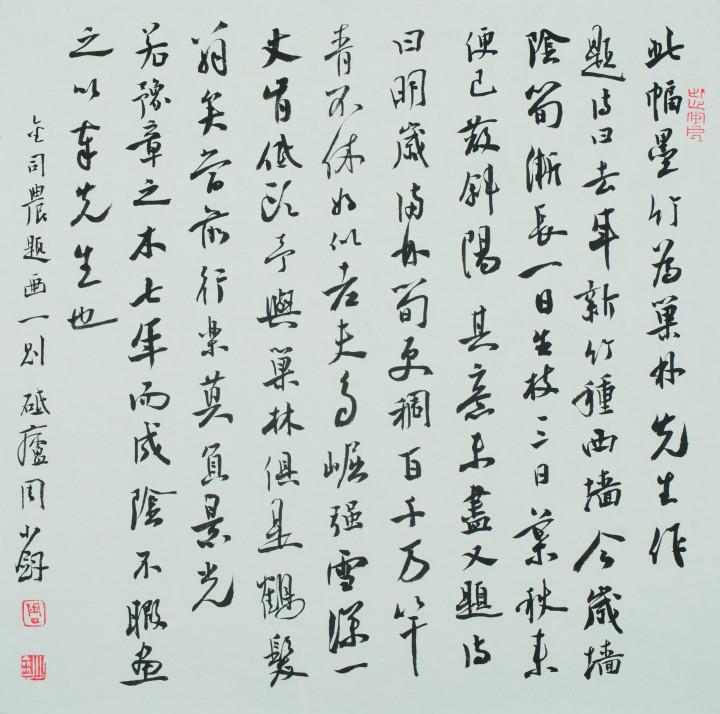 此幅墨竹為巢林先生作
題詩曰去年新竹種西墻今歲墻
陰筍漸長一日生枝三日葉秋來
便已散斜陽 其意未盡又題詩
曰明歲滿林筍更稠百千萬竿
青不休好似老夫多崛强雪深一
丈肯低頭予與巢林俱是鶴髮
翁矣尊前行樂莫負景光
若豫章之木七年而成陰不暇画
之以奉先生也
金司農題画一則 砥廬周小